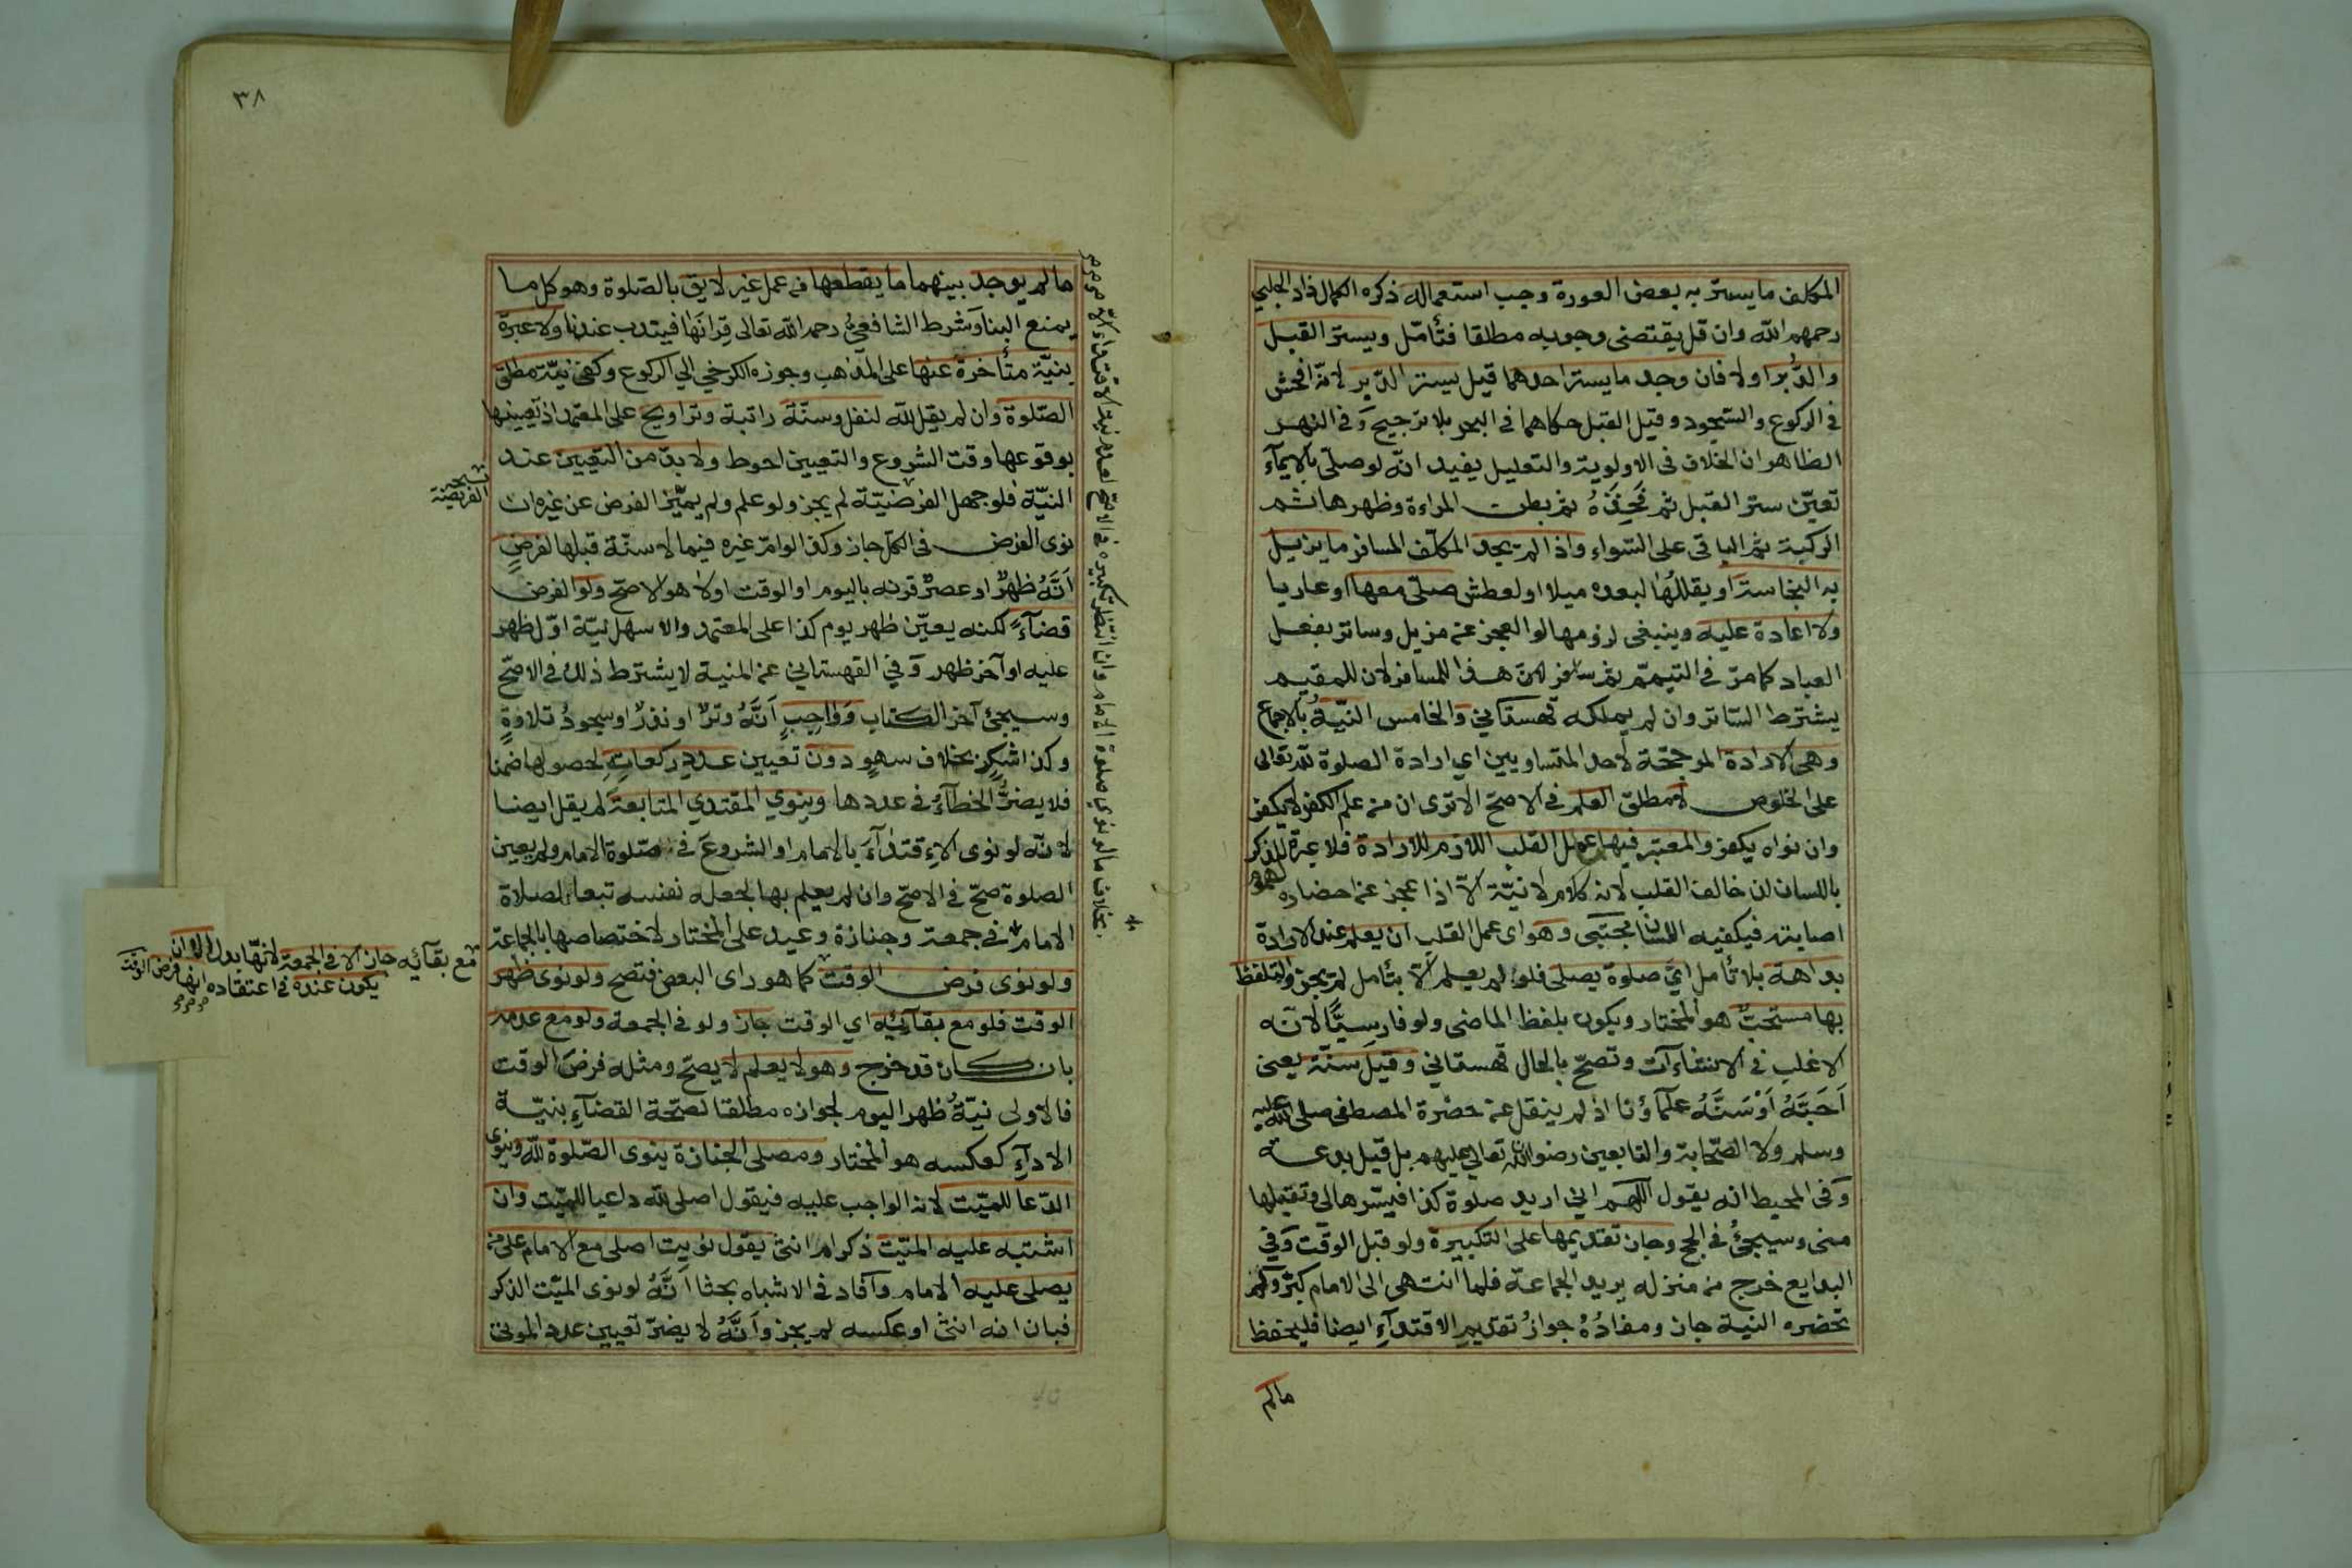 المكلف ما يستر به بعض العورة وجب استعماله ذكره الكمال زاد الحلبي
رحمهم الله وان قل يقتضي وجوبه مطلقا فتأمل ويستر القبل
والدبر اولا فان وجد ما يستر احدهما قيل يستر الدبر لانه افحش
في الركوع والسجود وقيل القبل حكاهما في البحر بلا ترجيح وفي النهر
الظاهر ان الخلاف في الاولوية والتعليل يفيد انه لو صلى بالايمآء
تعين ستر القبل ثم فخذه ثم بطن المراءة وظهرها ثم
الركبة ثم الباقي على السواء واذا لم يجد المكلف المسافر ما يزيل
به النجاسة او يقللها لبعده ميلا او لعطش صلى معها او عاريا
ولا اعادة عليه وينبغي لزومها لو العجز عن مزيل وساتر بفعل
العباد كما مر في التيمم ثم هذا للمسافر لان للمقيم
يشترط الساتر وان لم يملكه قهستاني والخامس النية بالاجماع
وهي الارادة المرجحة لاحد المتساويين اي ارادة الصلوة لله تعالى
على الخلوص لا مطلق العلم في الاصح الا ترى ان من علم الكفر لا يكفر
وان نواه يكفر والمعتبر فيها عمل القلب اللازم للارادة فلا عبرة للذكر
باللسان ان خالف القلب لانه كلام لا نية الا اذا عجز عن احضاره
اصابته فيكفيه اللسان مجتبى وهو اى عمل القلب ان يعلم عند الارادة
بداهة بلا تأمل اي صلوة يصلى فلو لم يعلم الا بتأمل لم يجز والتلفظ
بها مستحب هو المختار ويكون بلفظ الماضى ولو فارسيا لانه
الاغلب في الانشاءآت وتصح بالحال قهستاني وقيل سنة يعنى
احبه او سنه علمآؤنا اذ لم ينقل عن حضرة المصطفى صلى الله عليه
وسلم ولا الصحابة والتابعين رضوان الله تعالى عليهم بل قيل بدعة
وفي المحيط انه يقول اللهم اني اريد صلوة كذا فيسرها لي وتقبلها
منى وسيجئ في الحج وجاز تقديمها على التكبيرة ولو قبل الوقت وفي
البدايع خرج من منزله يريد الجماعة فلما انتهى الى الامام كبر ولم
تحضره النية جاز ومفاده جواز تقديم الاقتدآء ايضا فليحفظ
مالم
٣٨
ما لم يوجد بينهما ما يقطعها من عمل غير لايق بالصلوة وهو كل ما
يمنع البنا وشرط الشافعي رحمه الله تعالى قرانها فيندب عندنا ولا عبرة
بنية متأخرة عنها على المذهب وجوزه الكرخي الي الركوع وكفى نية مطلق
الصلوة وان لم يقل لله لنفل وسنة راتبة وتراويح على المعتمد اذ تعيينها
بوقوعها وقت الشروع والتعيين احوط ولا بد من التعيين عند
النية فلو جهل الفرضية لم يجز ولو علم ولم يميز الفرض عن غيره ان
نوى الفرض في الكل جاز وكذا لو ام غيره فيما لا سنة قبلها لفرض
انه ظهر او عصر قرنه باليوم او الوقت اولا هو الاصح ولو الفرض
قضآء لكنه يعين ظهر يوم كذا على المعتمد والاسهل نية اول ظهر
عليه او آخر ظهر وفي القهستاني عن المنية لا يشترط ذلك في الاصح
وسيجئ آخر الكتاب وواجب انه وتر او نذر او سجود تلاوة
وكذا شكر بخلاف سهو دون تعيين عدد ركعات لحصولها ضمنا
فلا يضر الخطآء في عددها وينوي المقتدي المتابعة لم يقل ايضا
لانه لو نوى الاقتدآء بالامام او الشروع في صلوة الامام ولم يعين
الصلوة صح في الاصح وان لم يعلم بها لجعله نفسه تبعا لصلاة
الامام في جمعة وجنازة وعيد على المختار لاختصاصها بالجماعة
ولو نوى فرض الوقت كما هو راى البعض فتصح ولو نوى ظهر
الوقت فلو مع بقآئه اي الوقت جاز ولو في الجمعة ولو مع عدمه
بان كان قد خرج وهو لا يعلم لا يصح ومثله فرض الوقت
فالاولى نية ظهر اليوم لجوازه مطلقا لصحة القضآء بنية
الادآء كعكسه هو المختار ومصلى الجنازة ينوى الصلوة لله وينوى
الدعا للميت لانه الواجب عليه فيقول اصلى لله داعيا للميت وان
اشتبه عليه الميت ذكر ام انثى يقول نويت اصلى مع الامام على من
يصلى عليه الامام وآفاد في الاشباه بحثا انه لو نوى الميت الذكر
فبان انه انثى او عكسه لم يجز وانه لا يضر تعيين عدد الموتى
بخلاف ما لو نوى صلوة الامام وان انتظر تكبيره في الاصح لعدم نية الاقتداء
الفريضة
مع بقآئه جاز الا في الجمعة لانها بدل الا ان
يكون عنده في اعتقاده انها فرض الوقت